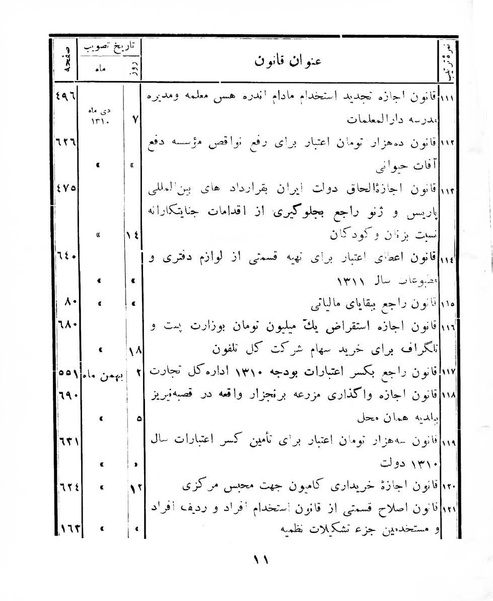 نمرهٔ ترتیب | عنوان قانون | تاریخ تصویب | صفحه
روز | ماه
۱۱۱ قانون اجازه تجدید استخدام مادام اندره هس معلمه و مدیره ۴۹۶
مدرسه دارالمعلمات ۷ دی ماه ۱۳۱۰
۱۱۲ قانون ده‌هزار تومان اعتبار برای رفع نواقص مؤسسه دفع ۶۲۶
آفات حیوانی » »
۱۱۳ قانون اجازهٔ الحاق دولت ایران بقرارداد های بین‌المللی ۴۷۵
پاریس و ژنو راجع بجلوگیری از اقدامات جنایتکارانه
نسبت بزنان و کودکان ۱۴ »
۱۱۴ قانون اعطای اعتبار برای تهیه قسمتی از لوازم دفتری و ۶۴۰
مطبوعات سال ۱۳۱۱ » »
۱۱۵ قانون راجع ببقایای مالیاتی » » ۸۰
۱۱۶ قانون اجازه استقراض یك میلیون تومان بوزارت پست و ۶۸۰
تلگراف برای خرید سهام شرکت کل تلفون ۱۸ »
۱۱۷ قانون راجع بکسر اعتبارات بودجه ۱۳۱۰ اداره کل تجارت ۲ بهمن ماه ۵۵۱
۱۱۸ قانون اجازه واگذاری مزرعه برنجزار واقعه در قصبه نیریز ۶۹۰
ببلدیه همان محل ۵ »
۱۱۹ قانون سه‌هزار تومان اعتبار برای تأمین کسر اعتبارات سال ۶۳۱
۱۳۱۰ دولت » »
۱۲۰ قانون اجازهٔ خریداری کامیون جهت محبس مرکزی ۱۲ » ۶۲۴
۱۲۱ قانون اصلاح قسمتی از قانون استخدام افراد و ردیف افراد
و مستخدمین جزء تشکیلات نظمیه » » ۱۶۳
۱۱